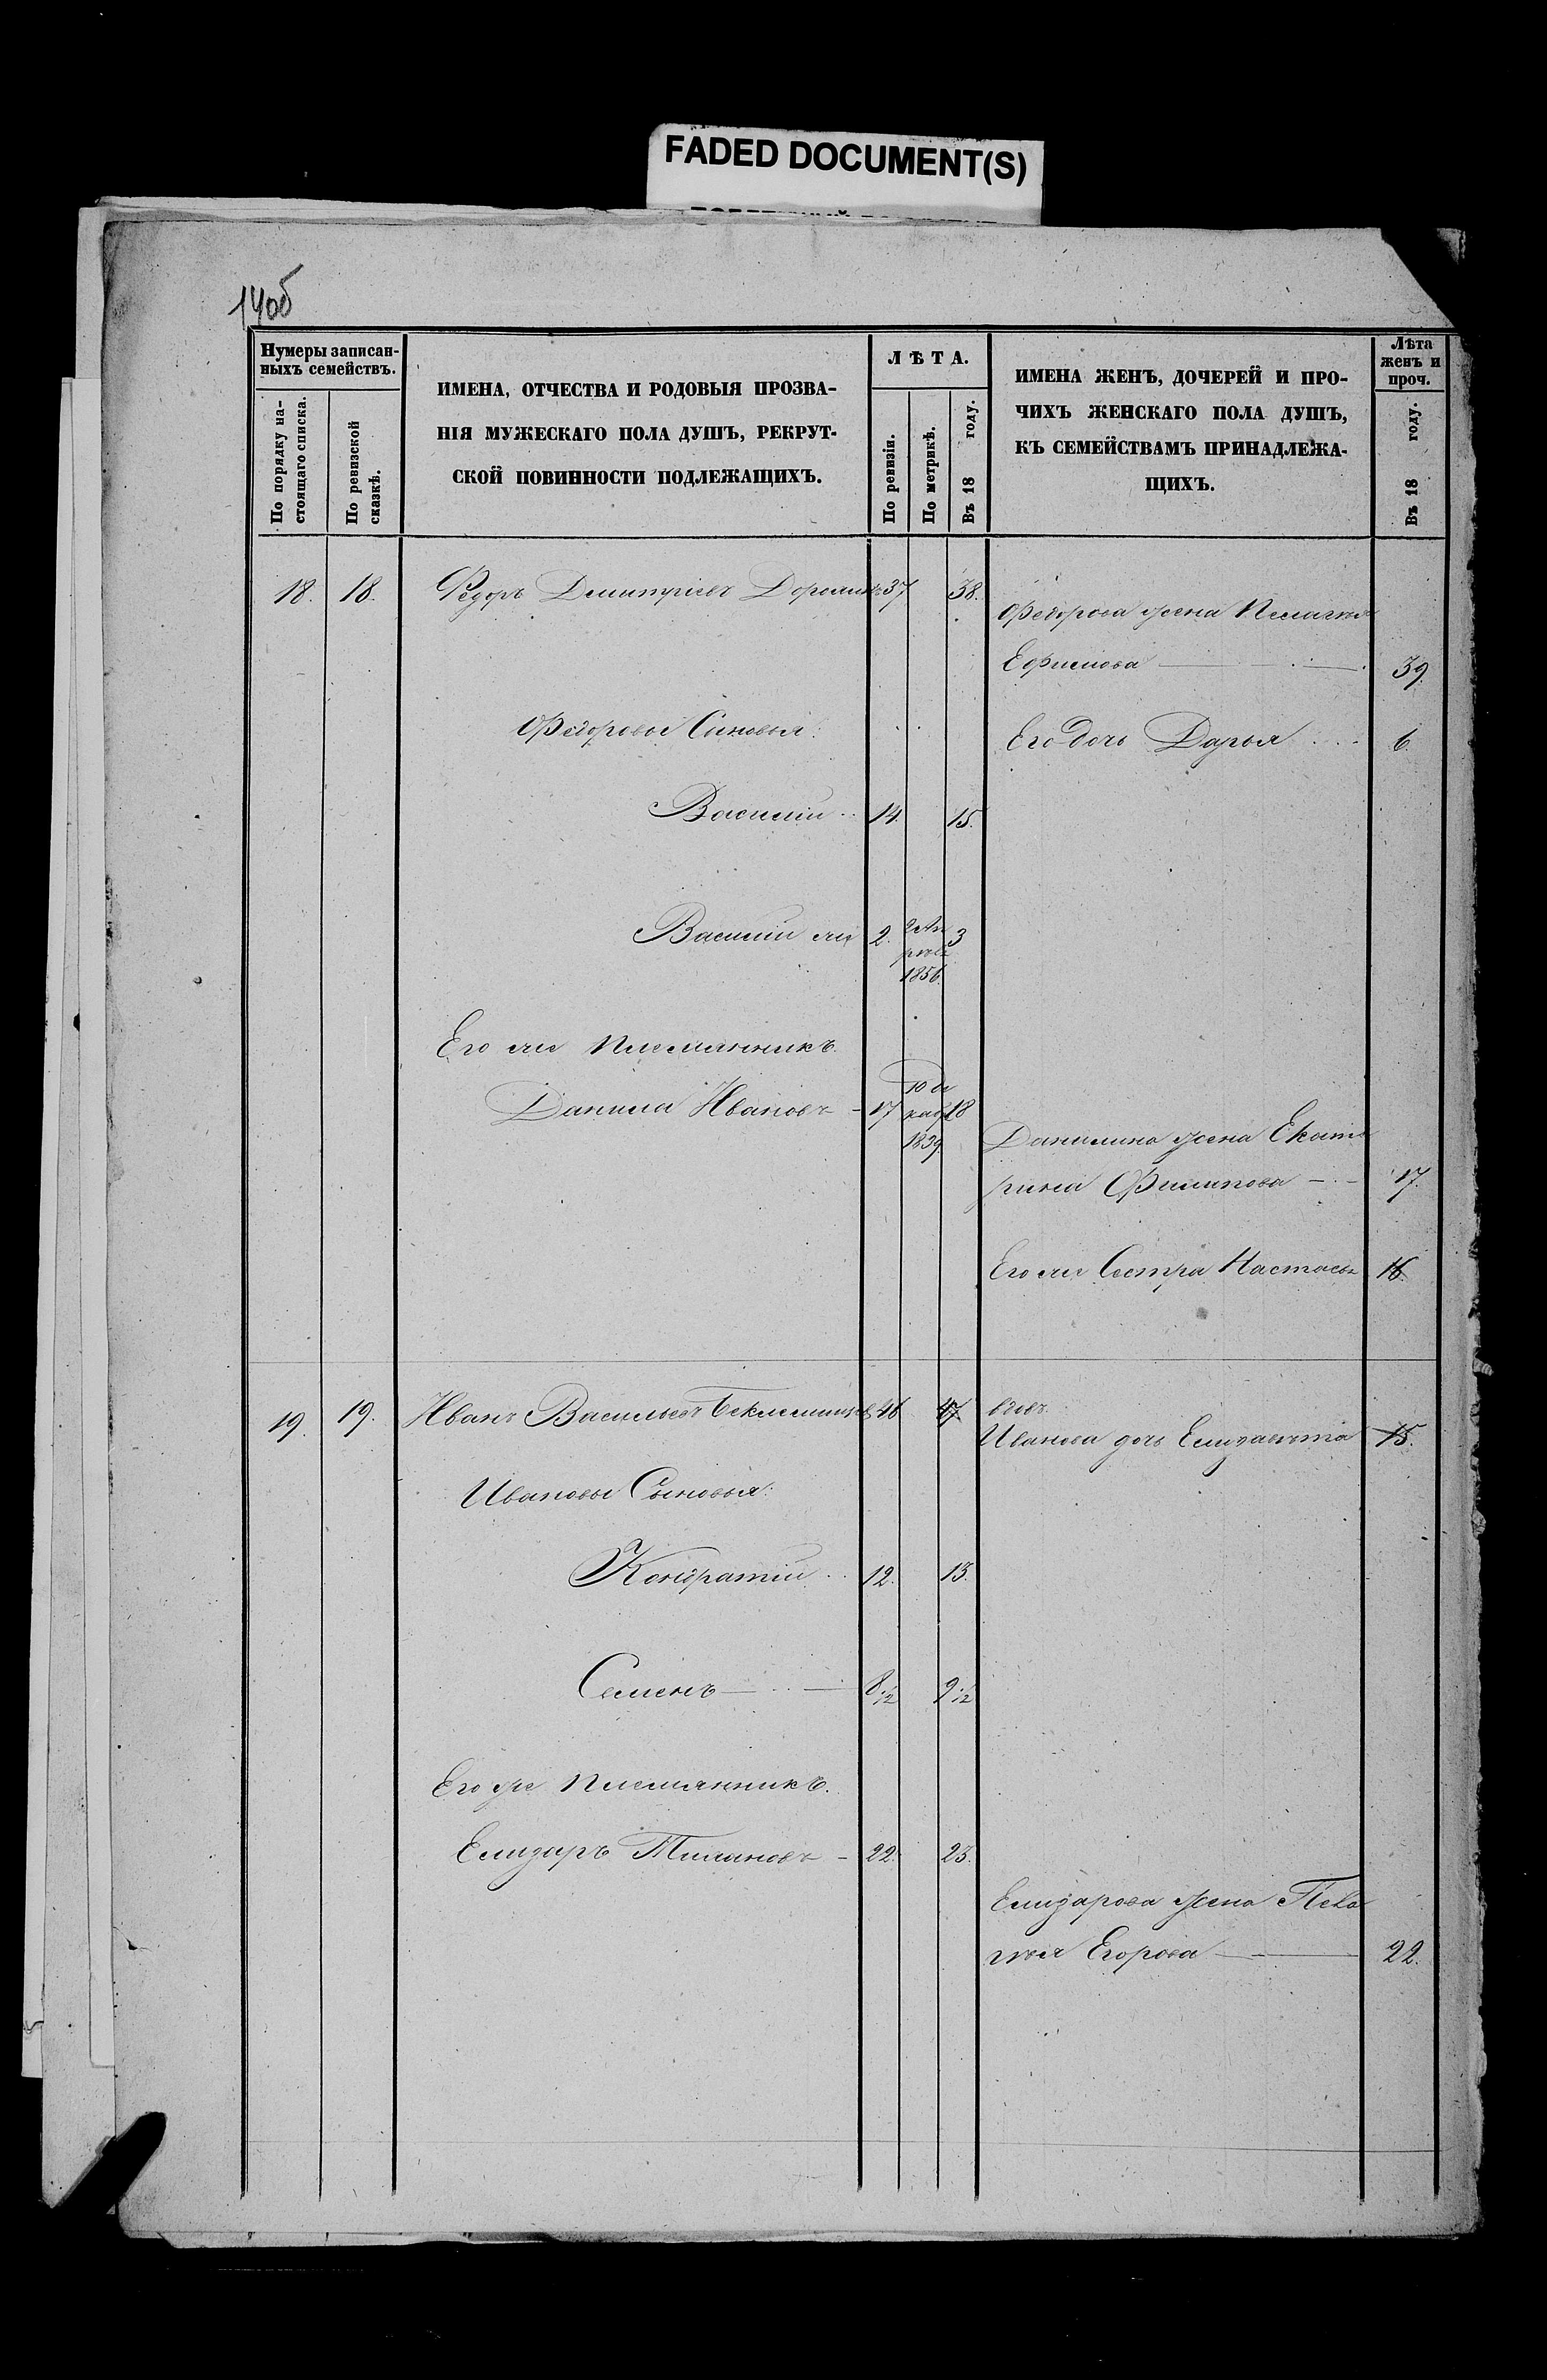 FADED DOCUMENT(S)
14об
Нумеры записан-
ныхъ семействъ.
По порядку на-
стоящаго списка.
По ревизской
сказкѣ.
ИМЕНА, ОТЧЕСТВА И РОДОВЫЯ ПРОЗВА-
НІЯ МУЖЕСКАГО ПОЛА ДУШЪ, РЕКРУТ-
СКОЙ ПОВИННОСТИ ПОДЛЕЖАЩИХЪ.
ЛѢТА.
По ревизіи.
По метрикѣ.
Въ 18 году.
ИМЕНА ЖЕНЪ, ДОЧЕРЕЙ И ПРО-
ЧИХЪ ЖЕНСКАГО ПОЛА ДУШЪ,
КЪ СЕМЕЙСТВАМЪ ПРИНАДЛЕЖА-
ЩИХЪ.
Лѣта
женъ и
проч.
Въ 18 году.
18. 18. Федоръ Димитріевъ 37 38.
Федорова жена Пелагѣя
Ефимова 39.
Федоровы Сыновья:
Его дочь Дарья 6.
Василій 14. 15.
Василій же 2. 2 Ап 3
рѣля
1856.
Его же Племянникъ.
Данила Ивановъ 17 10 де 18
каб
1839.
Данилина жена Екате
рина Филипова 17.
Его же Сестра Настасья 16.
19. 19. Иванъ Васильевъ Беклемишевъ 46 47 вдовъ.
Иванова дочь Елизавѣта 15.
Ивановы Сыновья:
Кондратій 12. 13.
Семенъ 8 1/2 9 1/2
Его же Племянникъ.
Елизаръ 22. 23.
Елизарова жена Пела
гѣя Егорова 22.